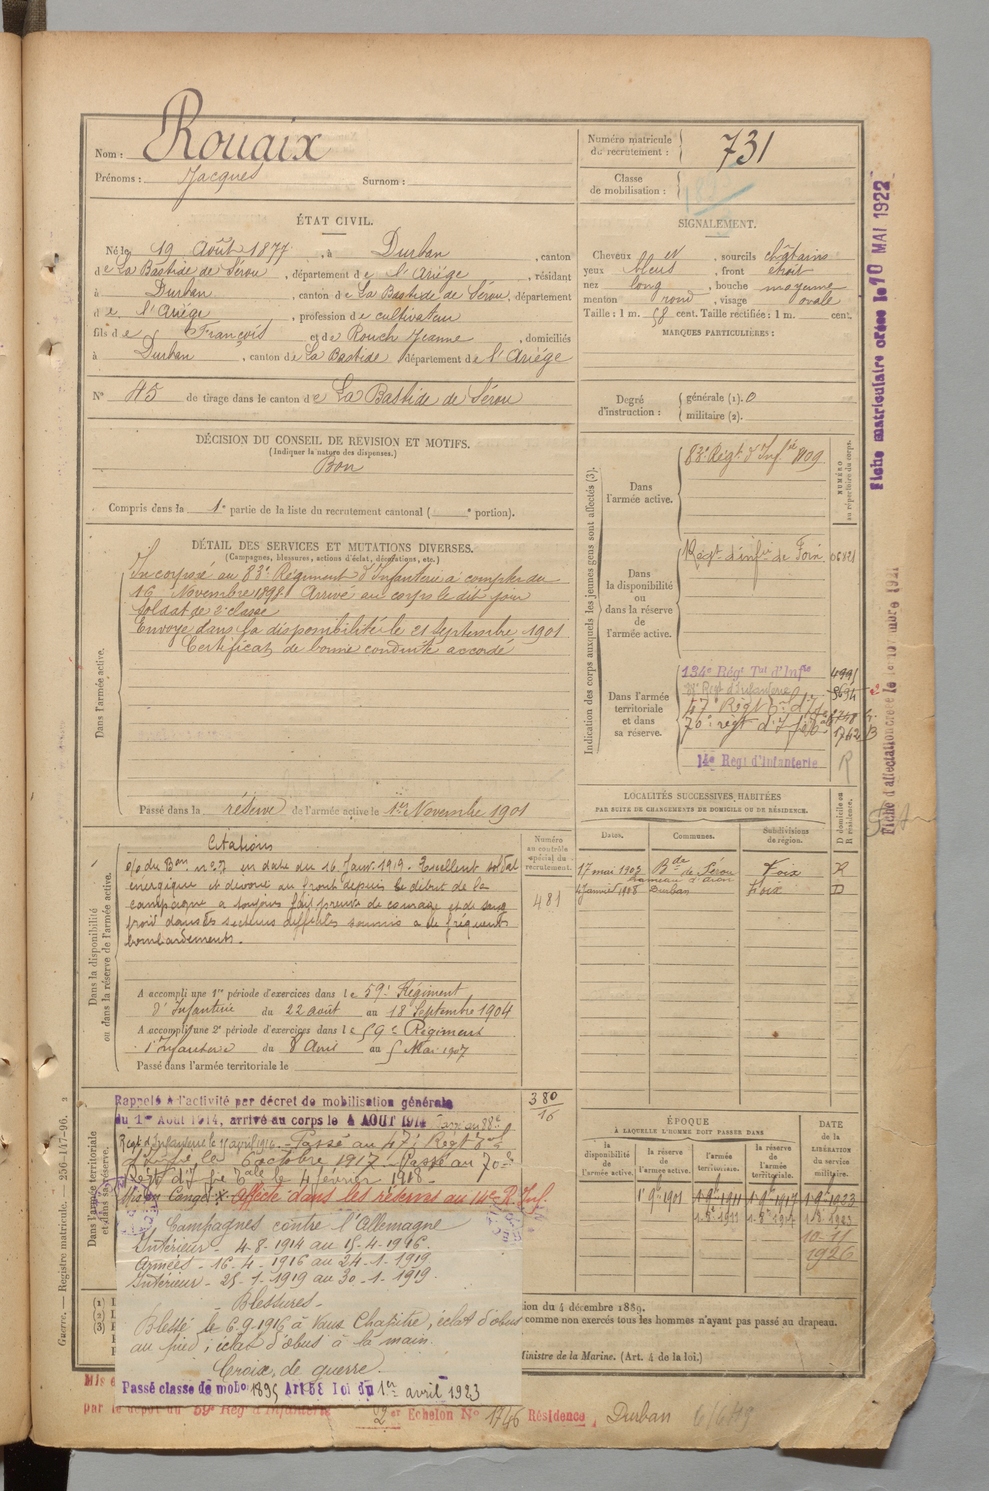 Nom : Rouaix
Prénoms : Jacques Surnom :
Numéro matricule du recrutement : 731
Classe de mobilisation :
ÉTAT CIVIL.
Né le 19 Août 1877, à Durban, canton
de La Bastide de Sérou, département de l'Ariège, résidant
à Durban, canton de La Bastide de Sérou, département
de l'Ariège, profession de cultivateur
fils de François et de Rouch Jeanne, domiciliés
à Durban, canton de La Bastide département de l'Ariège
N° 45 de tirage dans le canton de La Bastide de Sérou
SIGNALEMENT.
Cheveux et, sourcils châtains
yeux bleus, front étroit
nez long, bouche moyenne
menton rond, visage ovale
Taille : 1 m. 58 cent. Taille rectifiée : 1 m. cent.
MARQUES PARTICULIÈRES :
Degré d'instruction : générale (1). 0
militaire (2).
DÉCISION DU CONSEIL DE RÉVISION ET MOTIFS.
(Indiquer la nature des dispenses.)
Bon
Compris dans la 1e partie de la liste du recrutement cantonal ( e portion).
DÉTAIL DES SERVICES ET MUTATIONS DIVERSES.
(Campagnes, blessures, actions d'éclat, décorations, etc.)
Dans l'armée active.
Incorporé au 83e Régiment d'Infanterie à compter du
16 Novembre 1898. Arrivé au corps le dit jour
soldat de 2e classe
Envoyé dans la disponibilité le 21 septembre 1901
Certificat de bonne conduite accordé
Passé dans la réserve de l'armée active le 1er Novembre 1901
Indication des corps auxquels les jeunes gens sont affectés (3).
NUMÉRO au répertoire du corps.
Dans l'armée active.
83e Régt d'Infie 1109
Dans la disponibilité ou dans la réserve de l'armée active.
Régt d'infie de Foix 06821
Dans l'armée territoriale et dans sa réserve.
134e Régt Tal d'Infie 4991
Régt d'Infanterie
47e Régt d'Infie
70e régt d'Infie 1762
14e Régt d'Infanterie R
LOCALITÉS SUCCESSIVES HABITÉES
PAR SUITE DE CHANGEMENTS DE DOMICILE OU DE RÉSIDENCE.
Dates. Communes. Subdivisions de région. D domicile ou R résidence.
17 mai 1902 Bde de Sérou Foix R
4 janvier 1908 Durban Foix D
Dans la disponibilité ou dans la réserve de l'armée active.
Numéro au contrôle spécial du recrutement.
481
Citations
O/ du Bon n° 7 en date du 16 Janv. 1919. Excellent soldat
énergique et dévoué au front depuis le début de la
campagne a toujours fait preuve de courage et de sang
froid dans des secteurs difficiles soumis à de fréquents
bombardements.
A accompli une 1re période d'exercices dans le 59e Régiment
d'Infanterie du 22 août au 18 Septembre 1904
A accompli une 2e période d'exercices dans le 59e Régiment
d'Infanterie du 8 Avril au 5 Mai 1907
Passé dans l'armée territoriale le
380
16
Dans l'armée territoriale et dans sa réserve.
Rappelé à l'activité par décret de mobilisation générale
du 1er Août 1914, arrivé au corps le 4 AOUT 1914 Passé au 88e
Régt d'Infanterie le 11 avril 1916. Passé au 47e Régt
d'Infie le 6 octobre 1917. Passé au 70e
Régt d'Infie le 4 février 1918.
Affecté dans les réserves au 14e R. Inf.
Campagnes contre l'Allemagne
Intérieur - 4-8-1914 au 15-4-1916.
Armées - 16-4-1916 au 24-1-1919.
Intérieur - 25-1-1919 au 30-1-1919.
Blessures -
Blessé le 6-9-1916 à Vaux Chapitre, éclat d'obus
au pied ; éclat d'obus à la main.
Croix de guerre
Passé classe de mobon 1895 Art 58 Loi du 1er avril 1923
ÉPOQUE
À LAQUELLE L'HOMME DOIT PASSER DANS
la disponibilité de l'armée active. la réserve de l'armée active. l'armée territoriale. la réserve de l'armée territoriale. DATE de la LIBÉRATION du service militaire.
1 9bre 1901 1 9bre 1911 1 9bre 1917 1 9bre 1923
10-11
1926
(1)
(2)
(3)
tion du 4 décembre 1889.
comme non exercés tous les hommes n'ayant pas passé au drapeau.
Ministre de la Marine. (Art. 4 de la loi.)
par le dépôt du 59e Régt d'Infanterie
2er Echelon No 1746 Résidence, Durban
Guerre. — Registre matricule. — 256-147-96. 2
Fiche matriculaire créée le 10 MAI 1922
Fiche d'affectation créée le